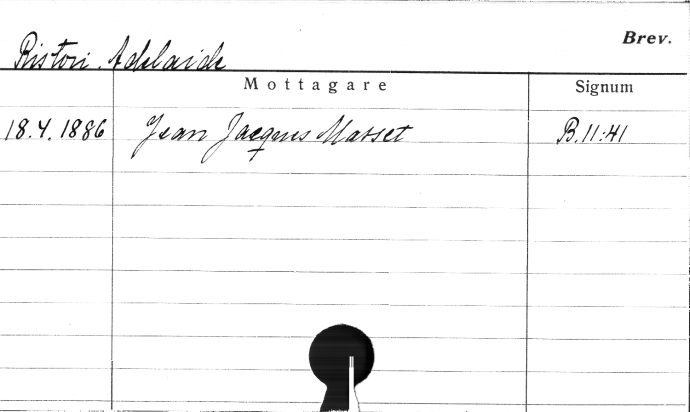 Brev.
Ristori, Adelaide
Mottagare Signum
18.4.1886 Jean Jacques Masset B.11:41